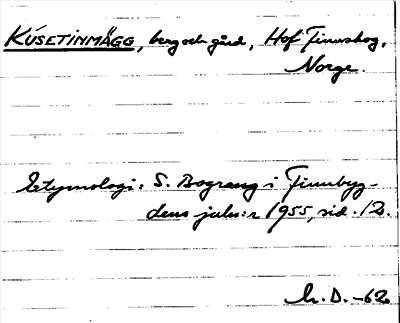 KÚSETINMÄGG, berg och gård, Hof Finnskog,
Norge.
Etymologi: S. Bograng i Finnbyg-
dens julnr 1955, sid. 12.
h. D. -62